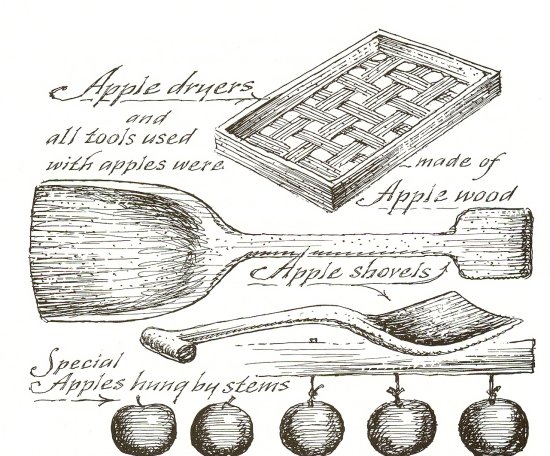 Apple dryers
and
all tools used
with apples were
made of
Apple wood
Apple shovels
Special
Apples hung by stems